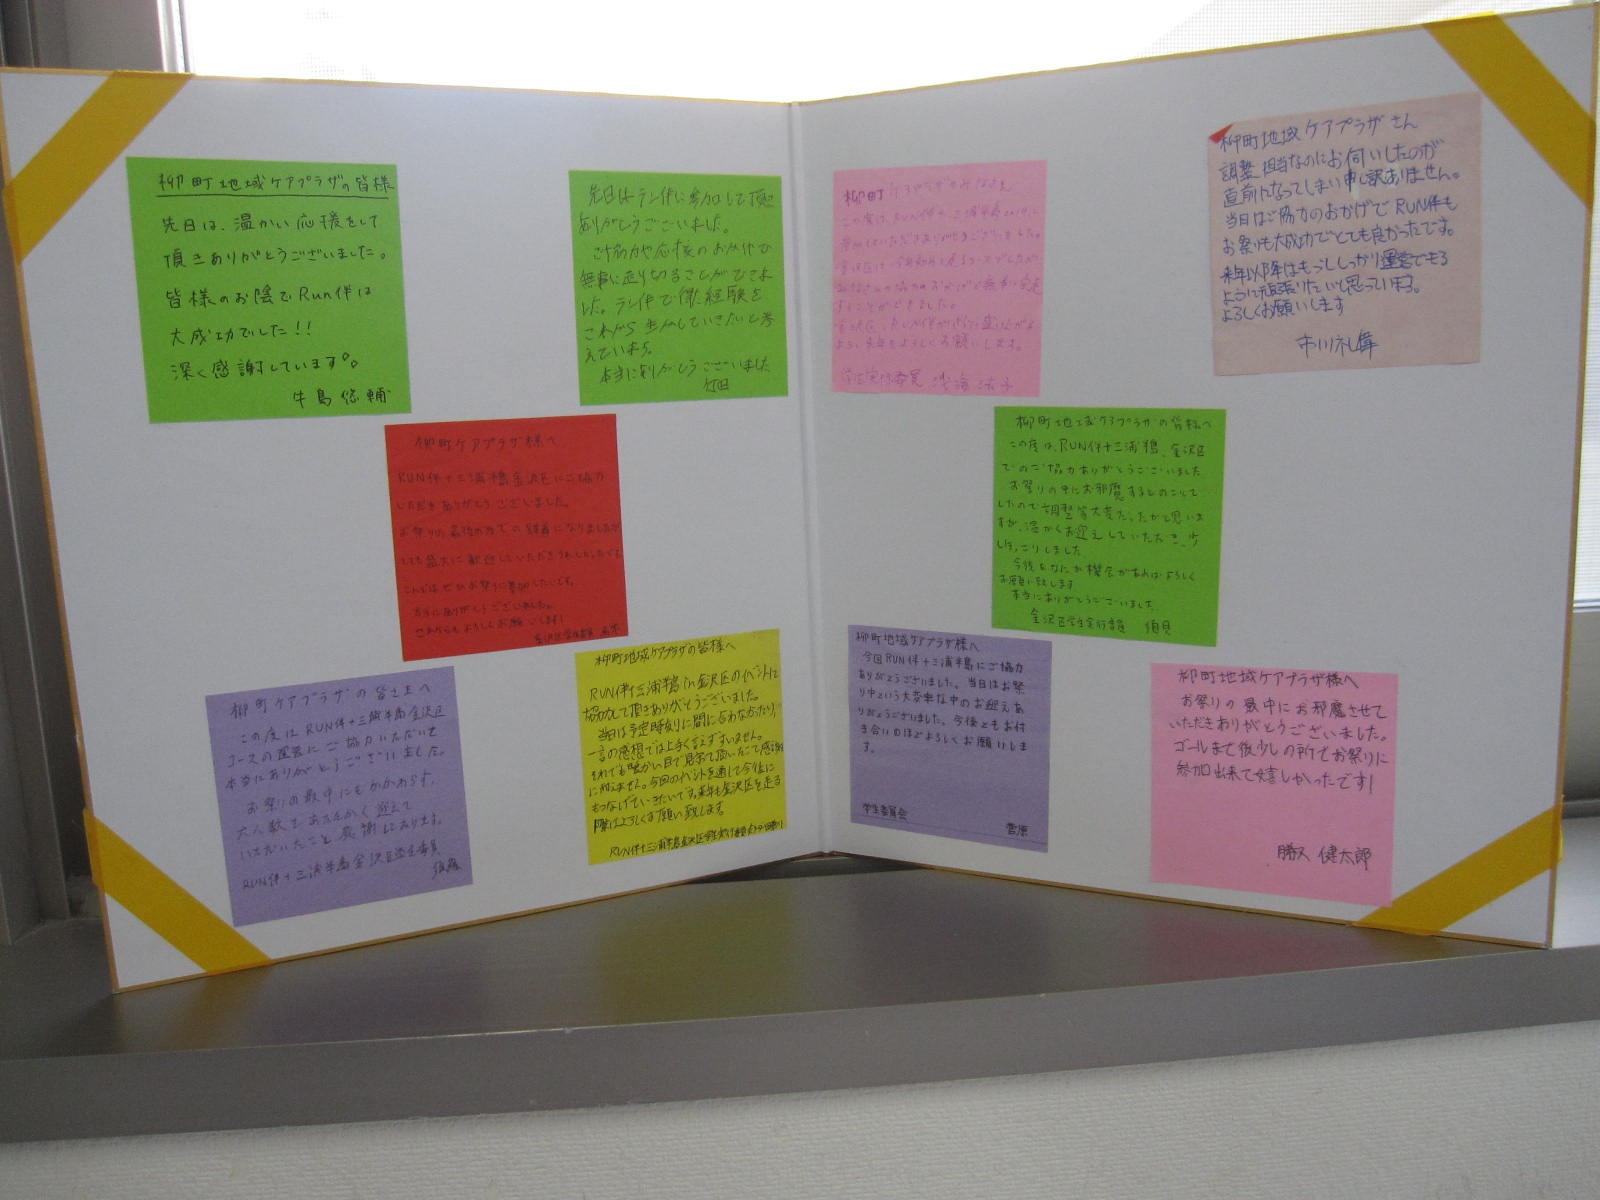 柳町地域ケアプラザの皆様
先日は、温かい応援をして
頂きありがとうございました。
皆様のお陰でRun伴は
大成功でした!!
深く感謝しています。
牛島悠輔
先日はラン伴に参加して頂き
ありがとうございました。
ご協力や応援のおかげで
無事に走り切ることができま
した。ラン伴で得た経験を
これから生かしていきたいと考
えています。
本当にありがとうございました
柳町ケアプラザ様へ
RUN伴+三浦半島金沢区にご協力
いただきありがとうございました。
お祭りの
こんどはぜひお祭りに参加したいです。
本当にありがとうございました。
これからもよろしくお願いします!
柳町ケアプラザの皆さまへ
この度はRUN伴+三浦半島金沢区
コースの運営にご協力いただいて
本当にありがとうございました。
お祭りの最中にもかかわらず、
大人数であたたかく迎えて
いただいたこと感謝しております。
RUN伴+三浦半島金沢区学生委員
柳町地域ケアプラザの皆様へ
RUN伴+三浦半島in金沢区のイベントに
協力して頂きありがとうございました。
当日は予定時刻に間に合わなかったり、
一言の感想では上手く言えずすいません。
それでも暖かい目で見守って頂いたこと感謝
に耐えません。今回のイベントを通して今後に
もつなげていきたいです。来年も金沢区を走る
際はよろしくお願い致します。
柳町ケアプラザのみなさま
この度は、RUN伴+三浦半島2019に
参加していただきありがとうございました。
すことができました。
柳町地域ケアプラザさん
調整担当なのにお伺いしたのが
直前になってしまい申し訳ありません。
当日はご協力のおかげでRUN伴も
お祭りも大成功でとても良かったです。
来年以降はもっとしっかり運営できる
ように頑張りたいと思っています。
よろしくお願いします
柳町地域ケアプラザの皆様へ
この度は、RUN伴+三浦半島、金沢区
でのご協力ありがとうございました
お祭りの中にお邪魔するとのことで
したので調整等大変だったかと思いま
すが、温かくお迎えしていただき、
ほっこりしました
今後もなにか機会があればよろしく
お願い致します
本当にありがとうございました。
金沢区学生実行委員
柳町地域ケアプラザ様へ
今回RUN伴+三浦半島にご協力
ありがとうございました。当日はお祭
り中という大変な中のお迎えあ
りがとうございました。今後ともお付
き合いのほどよろしくお願いしま
す。
学生委員会
菅原
柳町地域ケアプラザ様へ
お祭りの最中にお邪魔させて
いただきありがとうございました。
ゴールまで後少しの所でお祭りに
参加出来て嬉しかったです!
勝又 健太郎